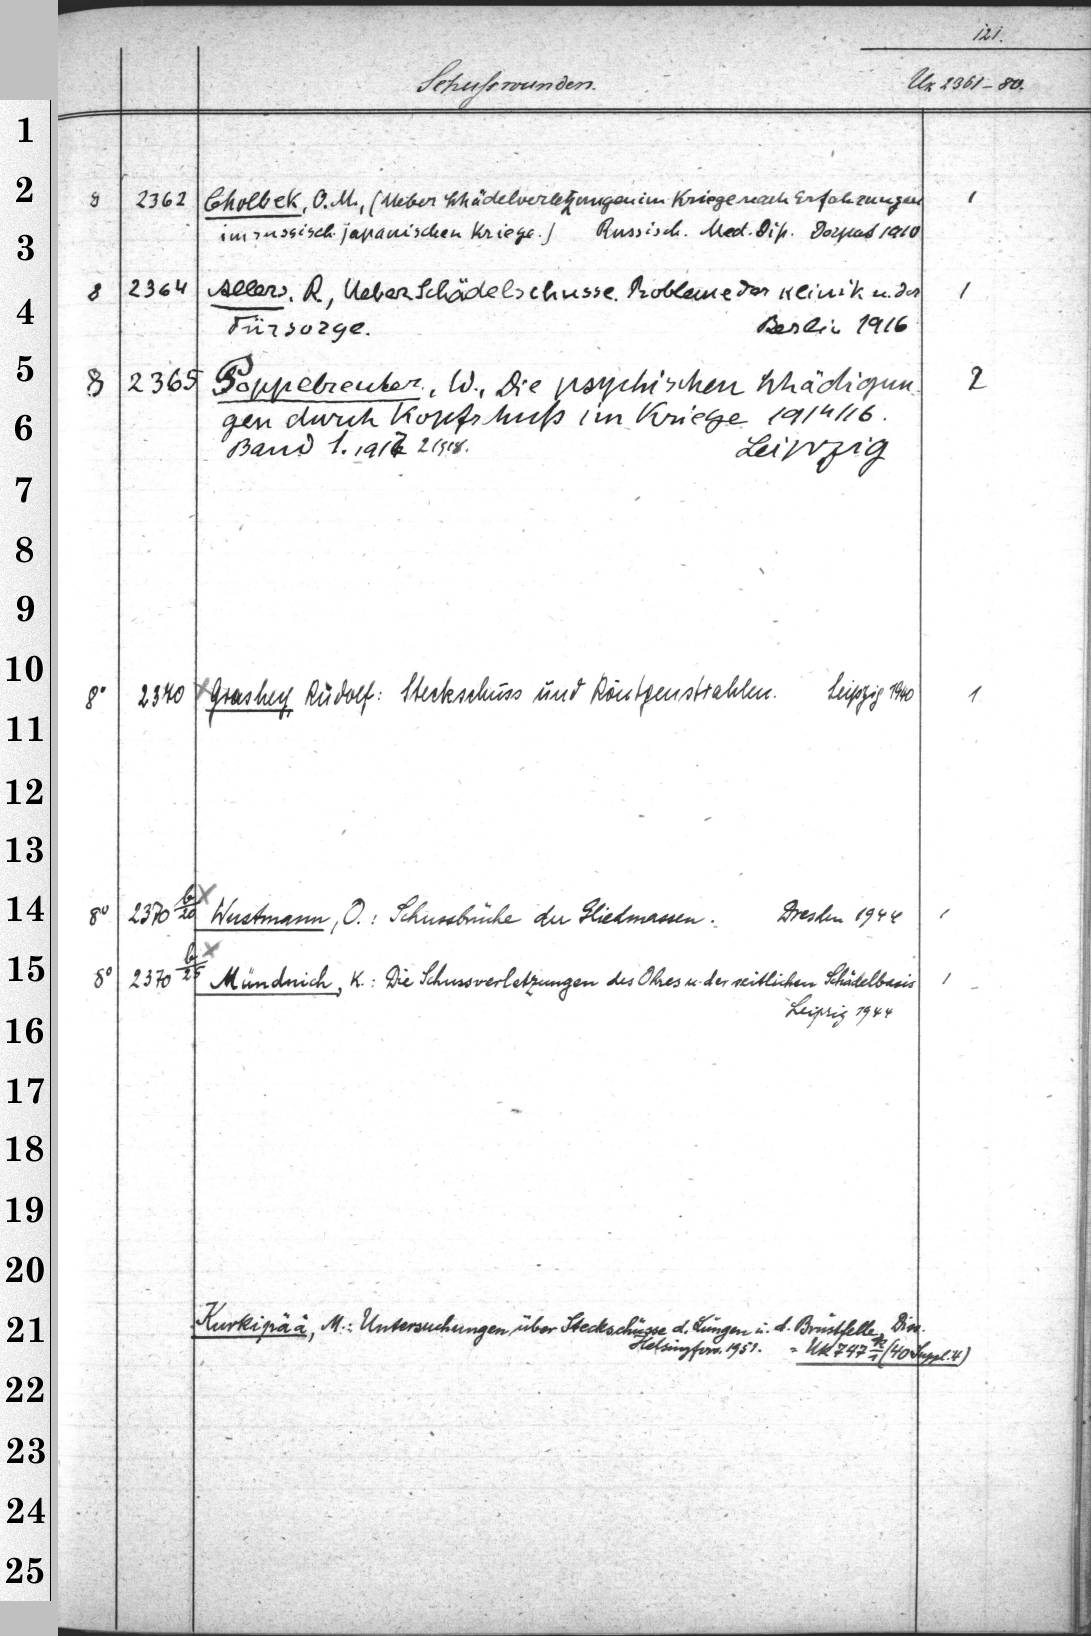 121.
Schusswunden. Uk 2361-80.
1
2
8 2362 Cholbek, O. M., (Ueber Schädelverletzungen im Kriege nach Erfahrungen 1
3
im russisch-japanischen Kriege.) Russisch. Med. Dis. Dorpat 1910
8 2364 Allers, R., Ueber Schädelschüsse. Probleme der Klinik u. der 1
4
Fürsorge. Berlin 1916
5
8 2365 Poppelreuter, W., Die psychischen Schädigun- 2
6
gen durch Kopfschuß im Kriege 1914/16.
Band 1. 1917 2 1918. Leipzig
7
8
9
10
8° 2370 Grashey, Rudolf: Steckschuss und Röntgenstrahlen. Leipzig 1940 1
11
12
13
14
8° 2370 b/20 Wustmann, O.: Schussbrüche der Gliedmassen. Dresden 1944 1
15
8° 2370 b/25 Mündnich, K.: Die Schussverletzungen des Ohres u. der seitlichen Schädelbasis 1
Leipzig 1944
16
17
18
19
20
21
Kurkipää, M.: Untersuchungen über Steckschüsse d. Lungen u. d. Brustfelle, Diss.
Helsingfors. 1951. = Uk 747 k/1 (40 Suppl. 4)
22
23
24
25